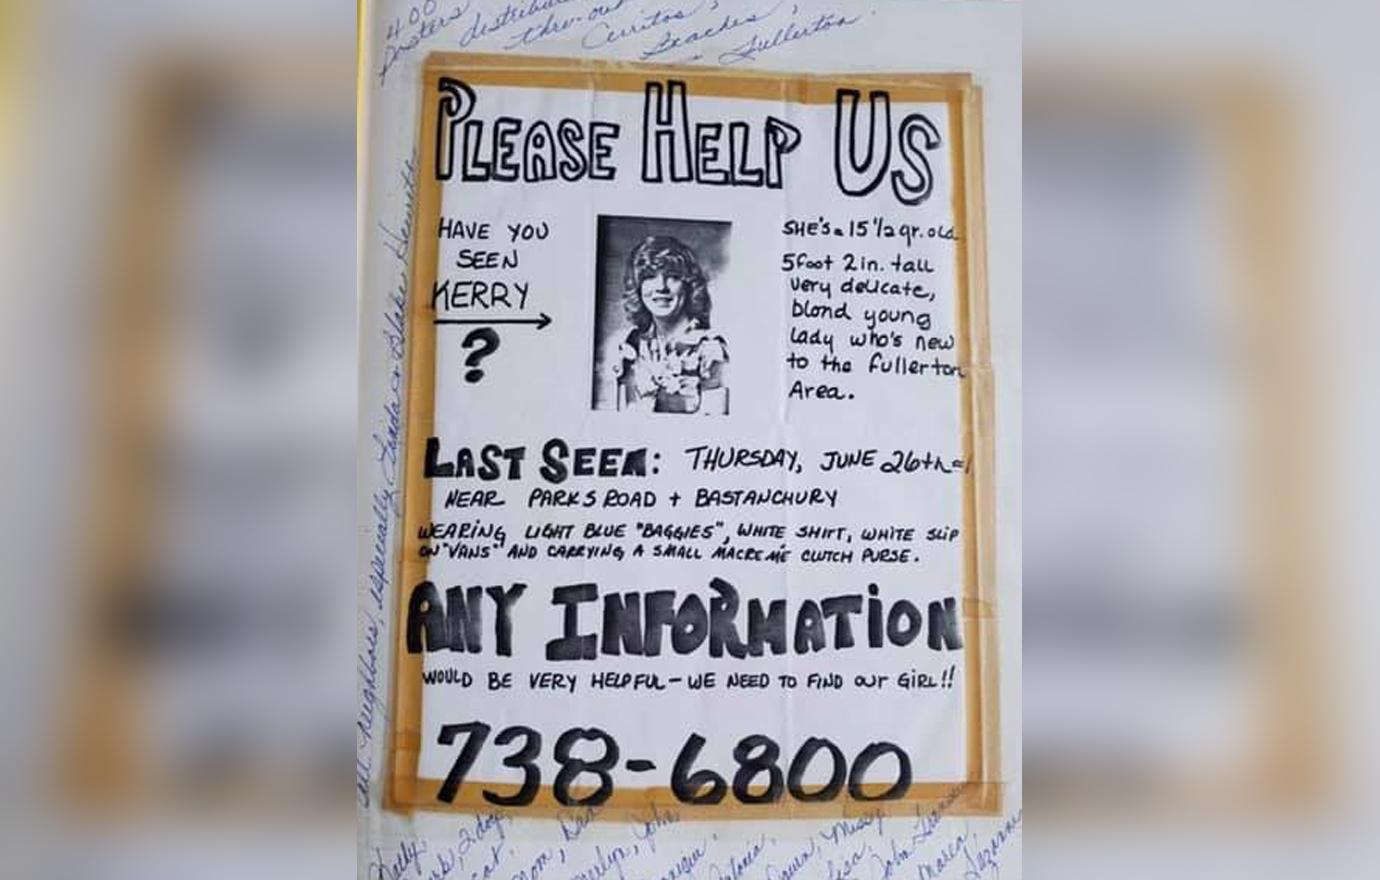 400
Posters
thru-out
Cerritos,
Beaches,
Fullerton.
all neighbors, especially Linda
PLEASE HELP US
HAVE YOU
SEEN
KERRY
?
SHE'S a 15 1/2 yr. old
5foot 2in. tall
very delicate,
blond young
lady who's new
to the fullerton
Area.
LAST SEEN: THURSDAY, JUNE 26th
NEAR PARKS ROAD + BASTANCHURY
WEARING LIGHT BLUE "BAGGIES", WHITE SHIRT, WHITE SLIP
ON "VANS" AND CARRYING A SMALL MACREMÉ CLUTCH PURSE.
ANY INFORMATION
WOULD BE VERY HELPFUL - WE NEED TO FIND our GiRL!!
738-6800
2 dogs,
cat,
mom, Dad
John,
Missy
Lisa,
John
Marca,
Suzanne